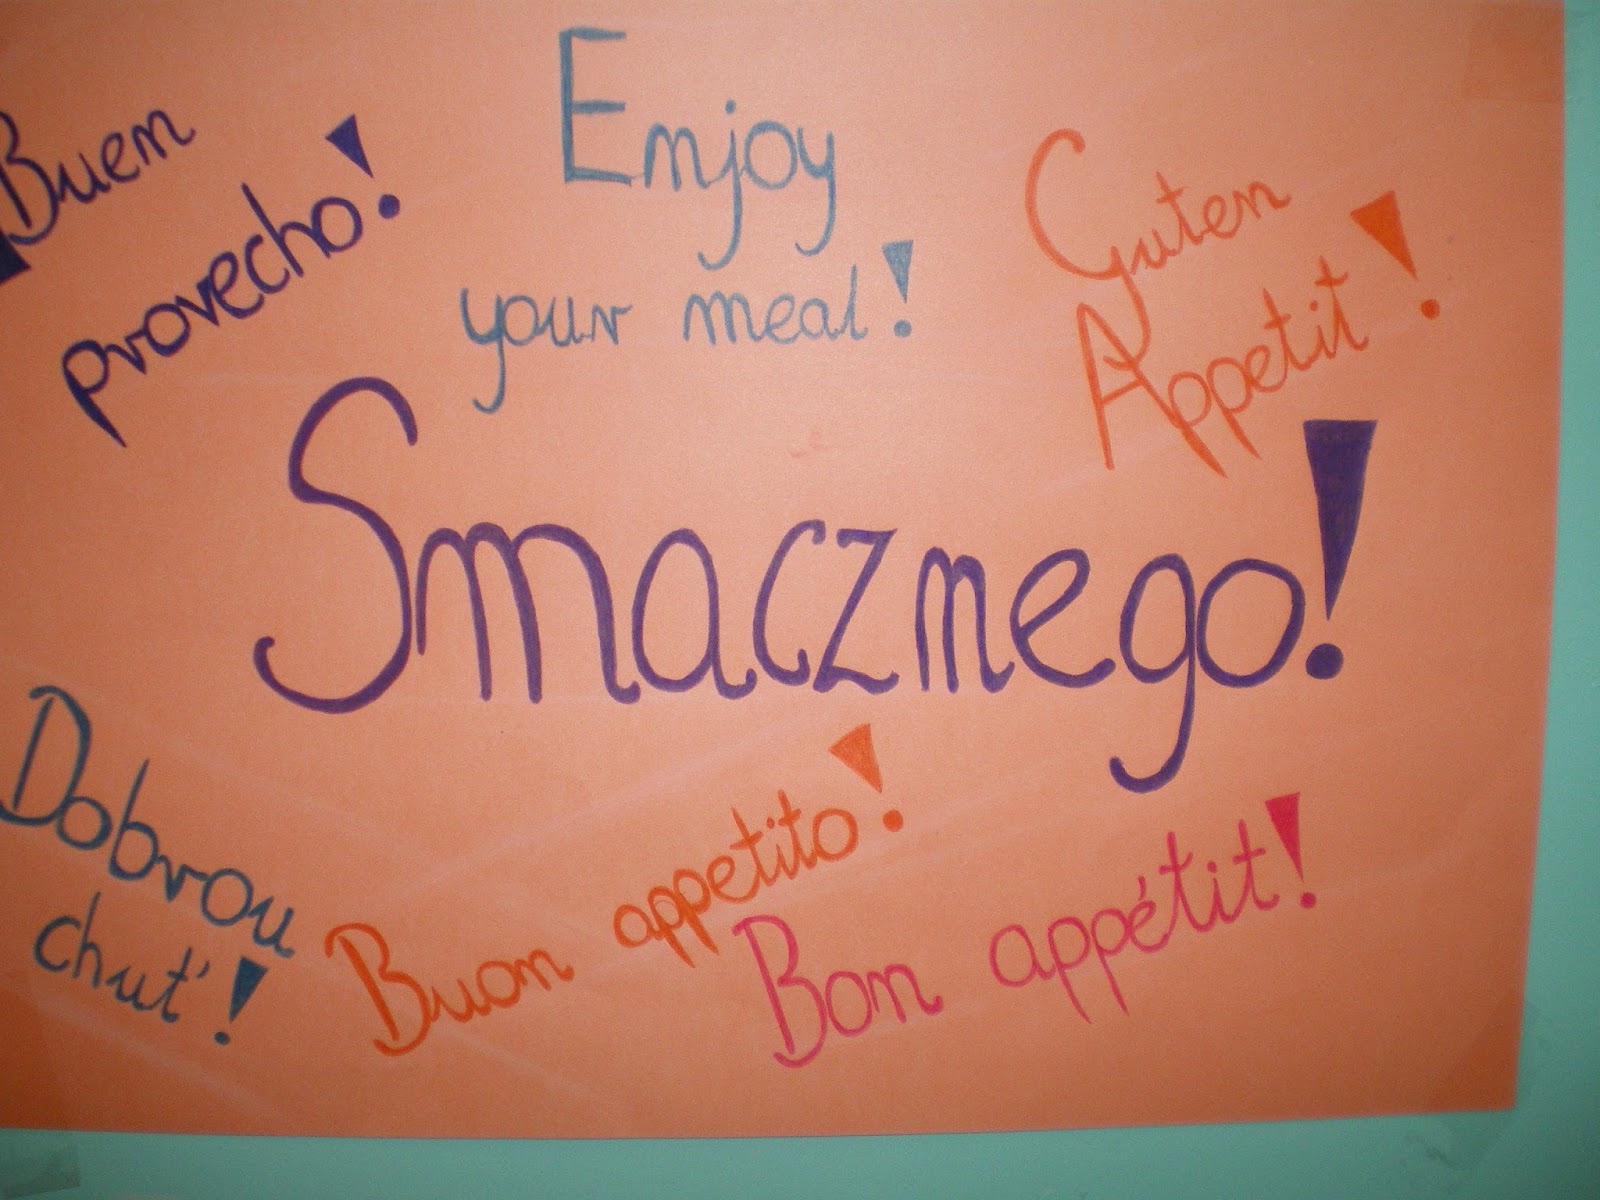 ¡Buen
provecho!
Enjoy
your meal!
Guten
Appetit!
Smacznego!
Dobrou
chuť!
Buon appetito!
Bon appétit!